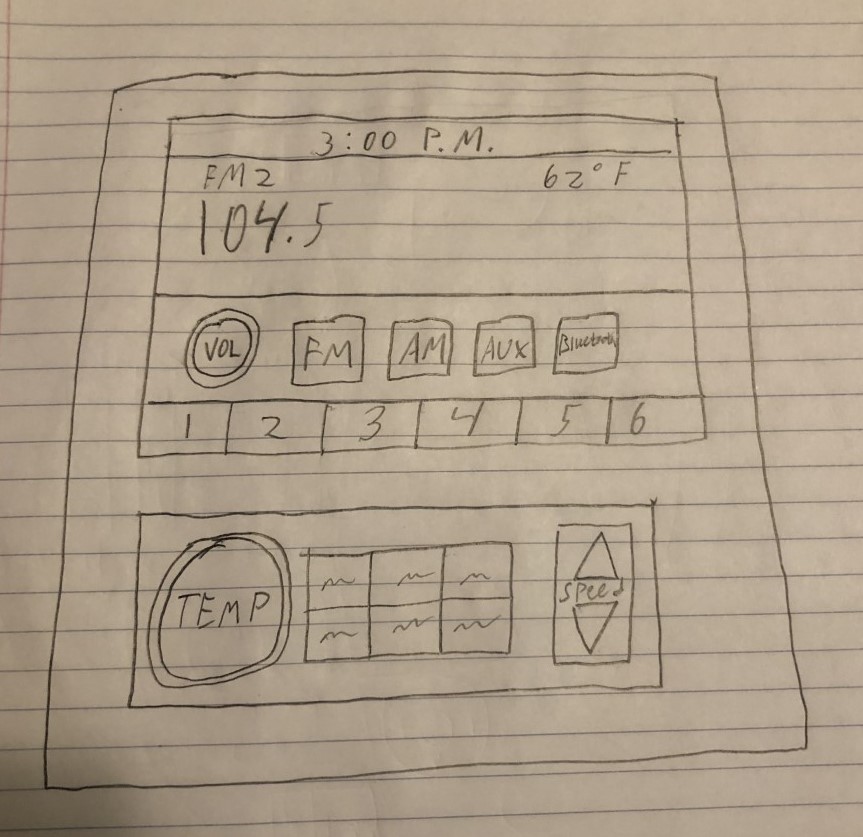 3:00 P.M.
FM2 62°F
104.5
VOL FM AM AUX Bluetooth
1 2 3 4 5 6
TEMP
Speed